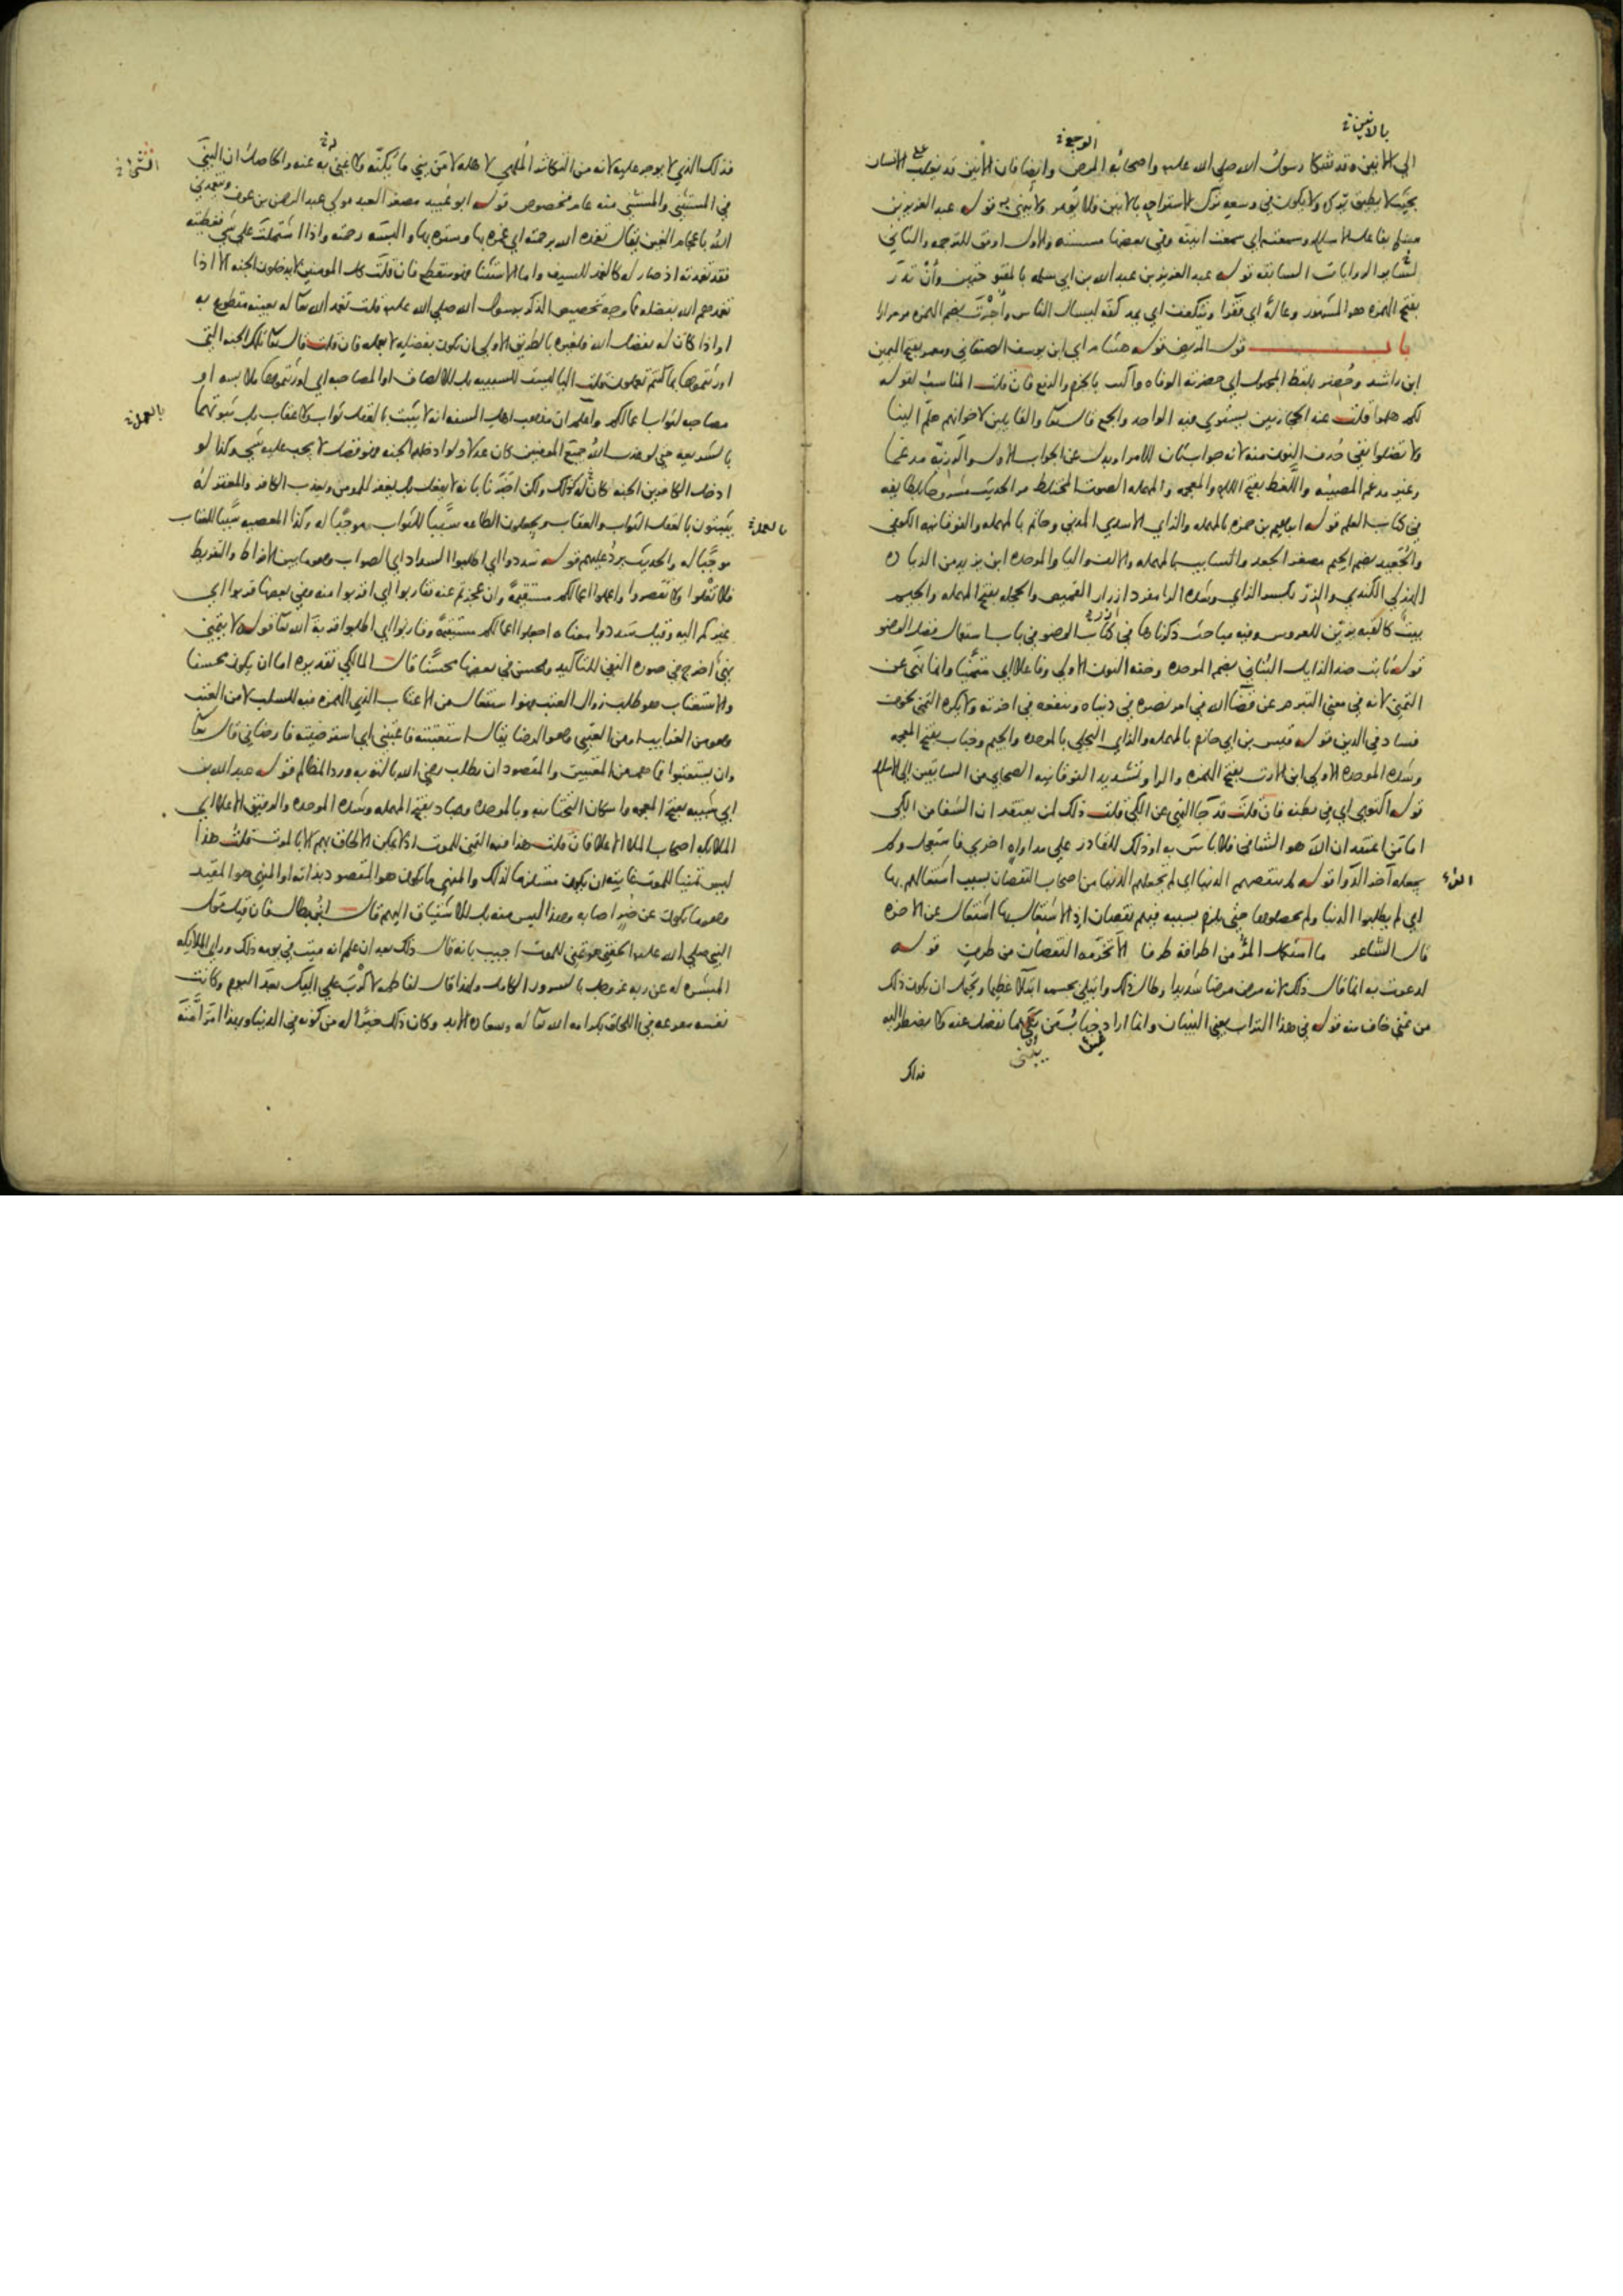 بالانين
الوجع
الي الانين وقد شكا رسول الله صلي الله عليه واصحابه المرض وايضا فان الانين قد يغلب علي الانسان
بحيث لا يطيق تركه ولا يكون في وسعه ترك الاستراحه بالانين فلا يؤمر ولا ينهي به قوله عبد العزيز بن
مسلم بفاعل الاسلام وسمعته اي سمعت انينه وفي بعضها مسسته والاول اوفق للترجمه والثاني
لسائر الروايات السابقه قوله عبد العزيز بن عبد الله بن ابي سلمه بالمفتوحتين وأن تذر
بفتح الهمزه هو المشهور وعالة اي فقرا ويتكففه اي يمد كفه ليسال الناس وأجرت بضم الهمزه مر مرارا
باب قول المريض قوله هشام اي ابن يوسف الصنعاني ومعمر بفتح الميمين
ابن راشد وحضر بلفظ المجهول اي حضرته الوفاه واكتب بالجزم والرفع فان قلت المناسب لقوله
لكم هلموا قلت عند الحجازيين يستوي فيه الواحد والجمع قال تعالى والقايلين لاخوانهم هلم الينا
ولا تضلوا نفي حذف النون منه لانه جوابثان للامر او بدل عن الجواب الاول والرزية مدغما
وغير مدغم المصيبه واللغط بفتح اللام والمعجمه والمهمله الصوت المختلط مر الحديث مشروحا بلطايفه
في كتاب العلم قوله ابراهيم بن حمزه بالمهمله والزاي الاسدي المدني وحاتم بالمهمله والفوقانيه الكوفي
والجعيد بضم الجيم مصغر الجعد والسايب بالمهمله والالف واليا والموحده ابن يزيد من الزياده
الهذلي الكندي والزر بكسر الزاي وشده الرا مفرد ازرار القميص والحجله بفتح المهمله والجيم
بيت كالقبه يزين للعروس وفيه مباحث ذكرناها في كتاب الوضو في باب استعمال فضل الوضو
قوله ثابت ضد الزايل البناني بضم الموحده وخفه النون الاولي وفاعلا اي متمنيا وانما نهي عن
التمني لانه في معني التبرم عن قضا الله في امر نصره في دنياه وينفعه في اخرته ولا يكره التمني لخوف
فساد في الدين قوله قيس بن ابي حازم بالمهمله والزاي البجلي بالموحده والجيم وخباب بفتح المعجمه
وشده الموحده الاولي ابن الارت بفتح الهمزه والرا وتشديد الفوقانيه الصحابي من السابقين الي الاسلام
قوله اكتوي اي في بطنه فان قلت قد جا النهي عن الكي قلت ذلك لمن يعتقد ان الشفا من الكي
اما من اعتقد ان الله هو الشافي فلا باس به او ذلك للقادر علي مداواه اخري فاستعجل ولم
يجعله آخر الدوا قوله لم تنقصهم الدنيا اي لم تجعلهم الدنيا من اصحاب النقصان بسبب اشتغالهم بها
اي لم يطلبوا الدنيا ولم يحصلوها حتي يلزم بسببه فيهم نقصان اذ الاشتغال بها اشتغال عن الاخره
قال الشاعر ما استكمل المرء من اطرافه طرفا الا تخرمه النقصان من طرف قوله
لدعوت به انما قال ذلك لانه مرض مرضا شديدا وطال ذلك وابتلي بجسمه ابتلاء عظيما ويحتمل ان يكون ذلك
من غني خاف منه قوله في هذا التراب يعني البنيان وانما اراد خباب من يبني ما يفضل عنه ولا يضطر اليه
فذلك
فذلك الذي لا يوجر عليه لانه من التكاثر الملهي لاهله لا من بني ما يكنه ولا غني به عنه والحاصل ان النبي
في المستثني والمستثني منه عام مخصوص قوله ابو عبيد مصغر العبد مولي عبد الرحمن بن عوف ويتغمدني
الله باعجام الغين يقال تغمده الله برحمته اي غمره بها وستره بها والبسه رحمته واذا اشتملت علي شي فغطيته
فقد تغمدته اذ صار له كالغمد للسيف واما الاستثنا فهو منقطع فان قلت كل المومنين لا يدخلون الجنه الا اذا
تغمدهم الله بفضله فما وجه تخصيص الذكر برسول الله صلي الله عليه قلت تغمد الله تعالى له بعينه مقطوع به
او اذا كان له بفضل الله فلغيره بالطريق الاولي ان يكون بفضله لا بعمله فان قلت قال تعالى تلك الجنه التي
اورثتموها بما كنتم تعملون قلت البا ليست للسببيه بل للالصاق او المصاحبه اي اورثتموها ملابسه او
مصاحبه لثواب اعمالكم واعلم ان مذهب اهل السنه انه لا يثبت بالعقل ثواب ولا عقاب بل ثبوتهما
بالشريعه حتي لو عذب الله جميع المومنين كان عدلا ولو ادخلهم الجنه فهو فضل لا يجب عليه شي وكذا لو
ادخل الكافرين الجنه لكان له ذلك ولكن اخبرنا بانه لا يفعل بل يغفر للمومن ويعذب الكافر والمعتزله
يثبتون بالعقل الثواب والعقاب ويجعلون الطاعه سببا للثواب موجبا له وكذا المعصيه سببا للعقاب
موجبا له والحديث يرد عليهم قوله سددوا اي اطلبوا السداد اي الصواب وهو ما بين الافراط والتفريط
فلا تغلوا ولا تقصروا واعملوا اعمالكم مستقيمة وان عجزتم عنه فقاربوا اي اقربوا منه وفي بعضها قربوا اي
غيركم اليه وقيل سددوا معناه اجعلوا اعمالكم مستقيمة وقاربوا اي اطلبوا قربة الله تعالى قوله لا يتمني
نهي اخرج في صوره النفي للتاكيد ومحسن في بعضها محسنا قال المالكي تقديره اما ان يكون محسنا
والاستعتاب هو طلب زوال العتب فهو استفعال من الاعتاب الذي الهمزه فيه للسلب لا من العتب
وهو من الغرايب او من العتبي وهو الرضا يقال استعتبته فاعتبني اي استرضيته فارضاني قال تعالى
وان يستعتبوا فما هم من المعتبين والمقصود ان يطلب رضي الله بالتوبه ورد المظالم قوله عبد الله بن
ابي شيبه بفتح المعجمه واسكان التحتانيه وبالموحده وعباد بفتح المهمله وشده الموحده والرفيق الاعلا اي
الملائكه اصحاب الملا الاعلا فان قلت هذا فيه التمني للموت اذ لا يمكن الالحاق بهم الا بالموت قلت هذا
ليس تمنيا للموت غايته ان يكون مستلزما لذلك والمنهي ما يكون هو المقصود بذاته او المنهي هو المقيد
وهو ما يكون عن ضر اصابه وهذا ليس منه بل للاشتياق اليهم قال ابن بطال فان قيل قول
النبي صلي الله عليه الحقني هو تمني للموت اجيب بانه قال ذلك بعد ان علم انه ميت في يومه ذلك وراي الملائكه
المبشره له عن ربه عز وجل بالسرور الكامل ولهذا قال لفاطمه لا كرب علي ابيك بعد اليوم وكانت
نفسه مفرغه في اللحاق بكرامه الله تعالى له وسعاده الابد وكان ذلك خيرا له من كونه في الدنيا وبهذا امر امته